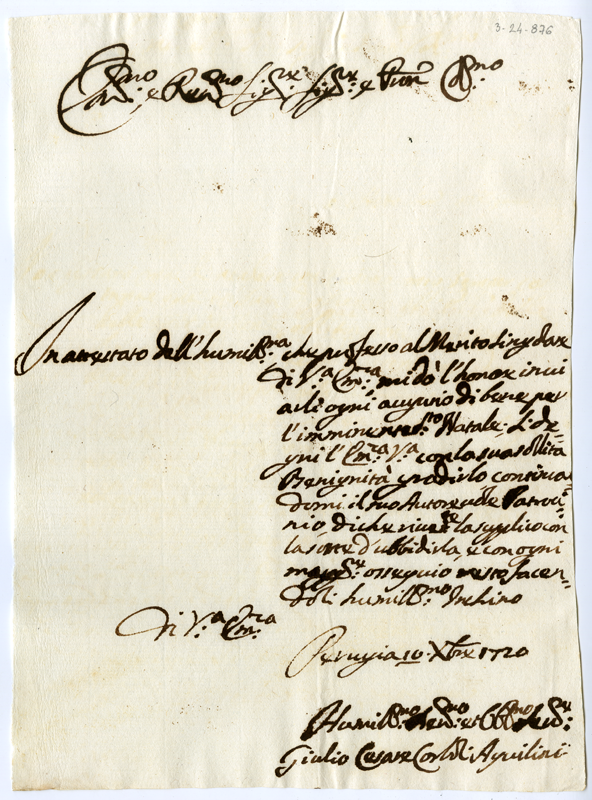 3-24-876
Em:mo e Rev:mo Sig:re Sig:re e Pron Col:mo
In attestato dell'humil:ma che professo al Merito Singolare
di V:a Em:za mi dò l'honore invi
arli ogni augurio di bene per
l'imminente S:to Natale; Si de=
gni l'Em:za V:a con la sua solita
Benignità gradirlo continua=
domi il suo Autorevole Patroci=
nio, di che rive:te la supplico con
la sorte d'ubbidirla, e con ogni
mag:re ossequio resto facen=
doli humill:mo Inchino
Di V:a Em:za
Perugia 10 Xbre 1720
Humil:mo Dev:mo et Obb:mo Ser:re
Giulio Cesare Aquilini